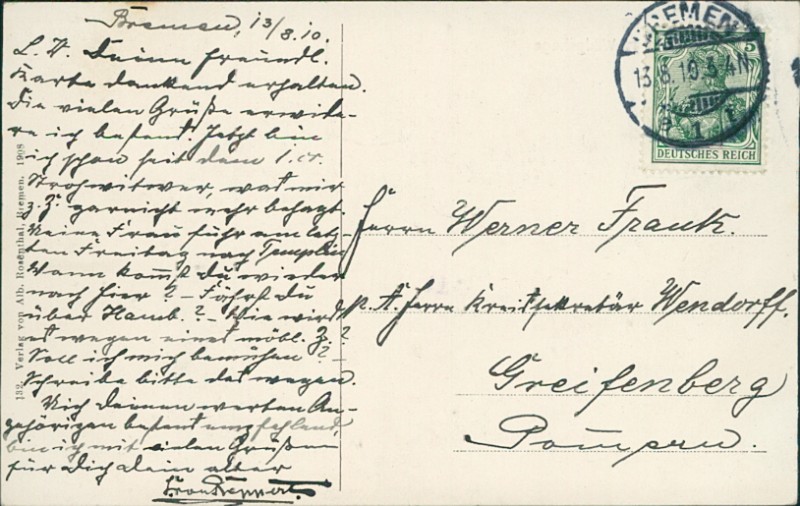 Bremen, 13/8.10.
L. W. Deine freundl.
Karte dankend erhalten.
Die vielen Grüße erwide-
re ich bestens. Jetzt bin
ich schon seit dem 1. cr.
Strohwitwer, was mir
z. Z. garnicht mehr behagt.
Meine Frau fuhr am letz-
ten Freitag nach Templin
Wann kommst du wieder
nach hier? – Fährst du
über Hamb.? – Wie wird
es wegen eines möbl. Z.?
Soll ich mich bemühen? –
Schreibe bitte des wegen.
Mich Deinen werten An-
gehörigen bestens empfehlend,
bin ich mit vielen Grüßen
für Dich Dein alter
132. Verlag von Alb. Rosenthal, Bremen. 1908
BREMEN
13.8.10.3-4N.
1
5
DEUTSCHES REICH
Herrn Werner Frank.
p. A. Herrn Kreissekretär Wendorff.
Greifenberg
Pommern.